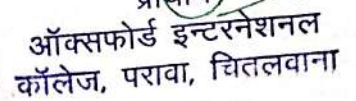 ऑक्सफोर्ड इन्टरनेशनल
कॉलेज, परावा, चितलवाना